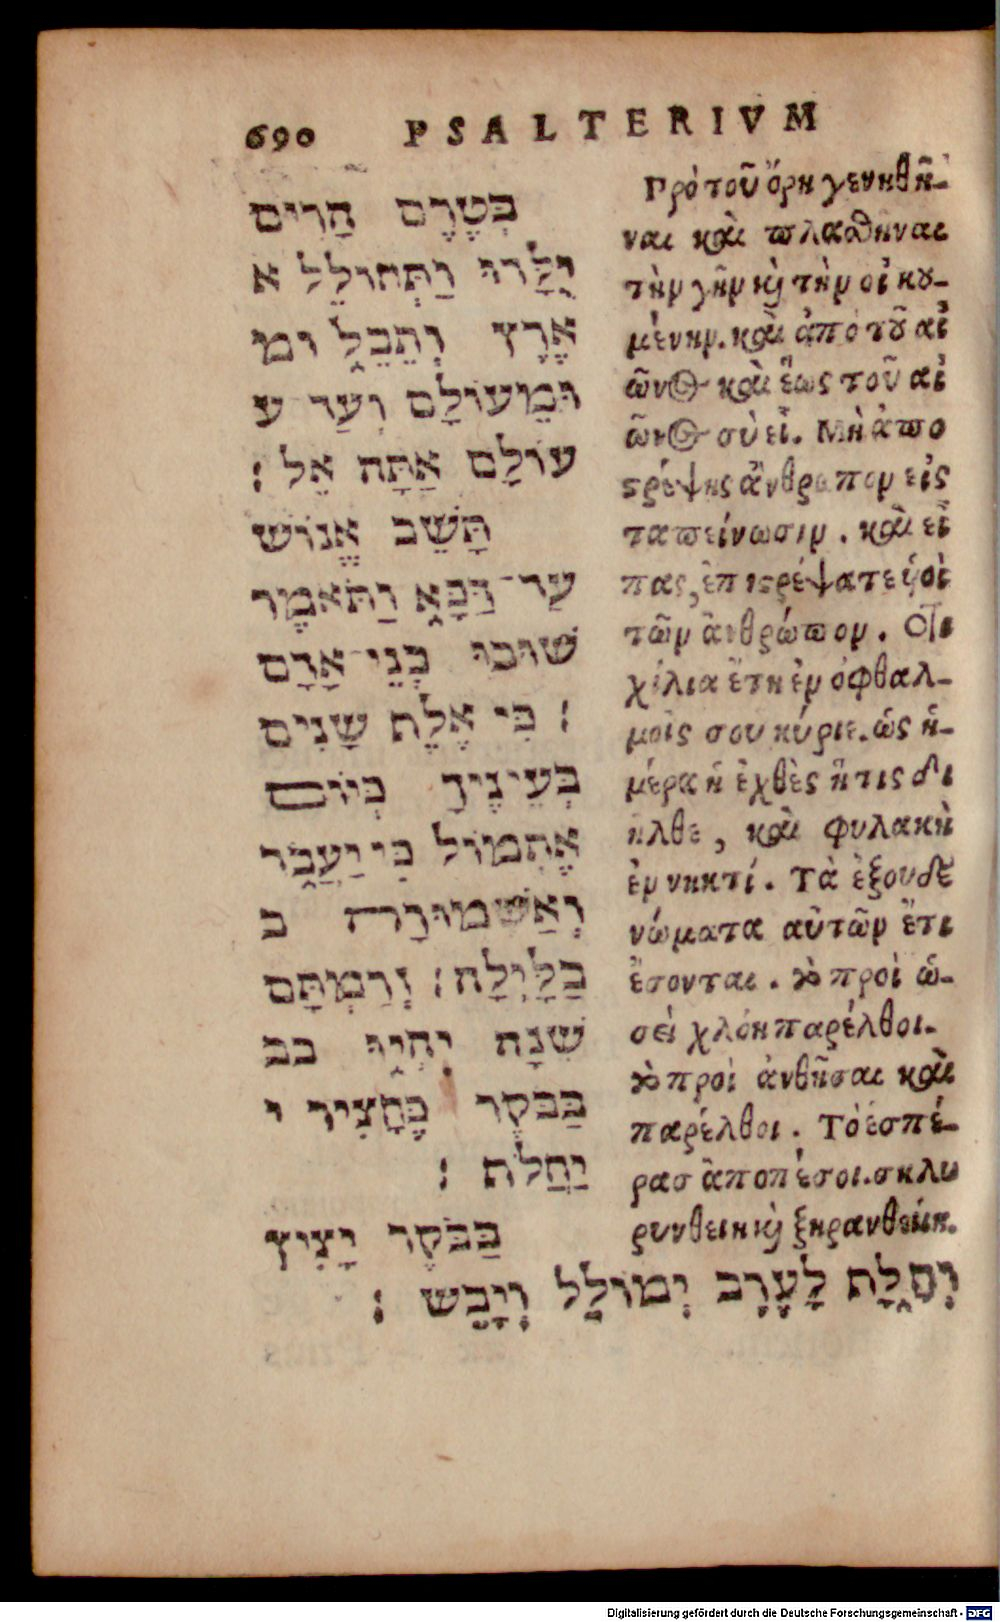 690 PSALTERIVM
בְּטֶרֶם הָרִים
יֻלָּדוּ וַתְּחוֹלֵל א
אֶרֶץ וְתֵבֵל וּמ
וּמֵעוֹלָם וְעַד ע
עוֹלָם אַתָּה אֵל :
תָּשֵׁב אֱנוֹשׁ
עַד־דַּכָּא וַתֹּאמֶר
שׁוּבוּ בְּנֵי־אָדָם
: כִּי אֶלֶף שָׁנִים
בְּעֵינֶיךָ כְּיוֹם
אֶתְמוֹל כִּי יַעֲבֹר
וְאַשְׁמוּרָה ב
בַלָּיְלָה : זְרַמְתָּם
שֵׁנָה יִהְיוּ בב
בַּבֹּקֶר כֶּחָצִיר י
יַחֲלֹף :
בַּבֹּקֶר יָצִיץ
וְחָלָף לָעֶרֶב יְמוֹלֵל וְיָבֵשׁ :
Πρὸ τοῦ ὄρη γενηθῆ-
ναι καὶ πλασθῆναι
τὴν γῆν καὶ τὴν οἰκου-
μένην. καὶ ἀπὸ τοῦ αἰ
ῶνος καὶ ἕως τοῦ αἰ
ῶνος σὺ εἶ. Μὴ ἀπο
στρέψῃς ἄνθρωπον εἰς
ταπείνωσιν. καὶ εἶ
πας, ἐπιστρέψατε ὑοὶ
τῶν ἀνθρώπον. Ὅτι
χίλια ἔτη ἐν ὀφθαλ-
μοῖς σου κύριε. ὡς ἡ-
μέρα ἡ ἐχθὲς ἥτις δι
ῆλθε, καὶ φυλακὴ
ἐν νηκτί. Τὰ ἐξουδε
νώματα αὐτῶν ἔτι
ἔσονται. τὸ πρωὶ ὡ-
σεὶ χλόη παρέλθοι.
τὸ πρωὶ ἀνθῆσαι καὶ
παρέλθοι. Τὸ ἑσπέ-
ρασ ἀποπέσοι. σκλυ
ρυνθείη καὶ ξηρανθείη.